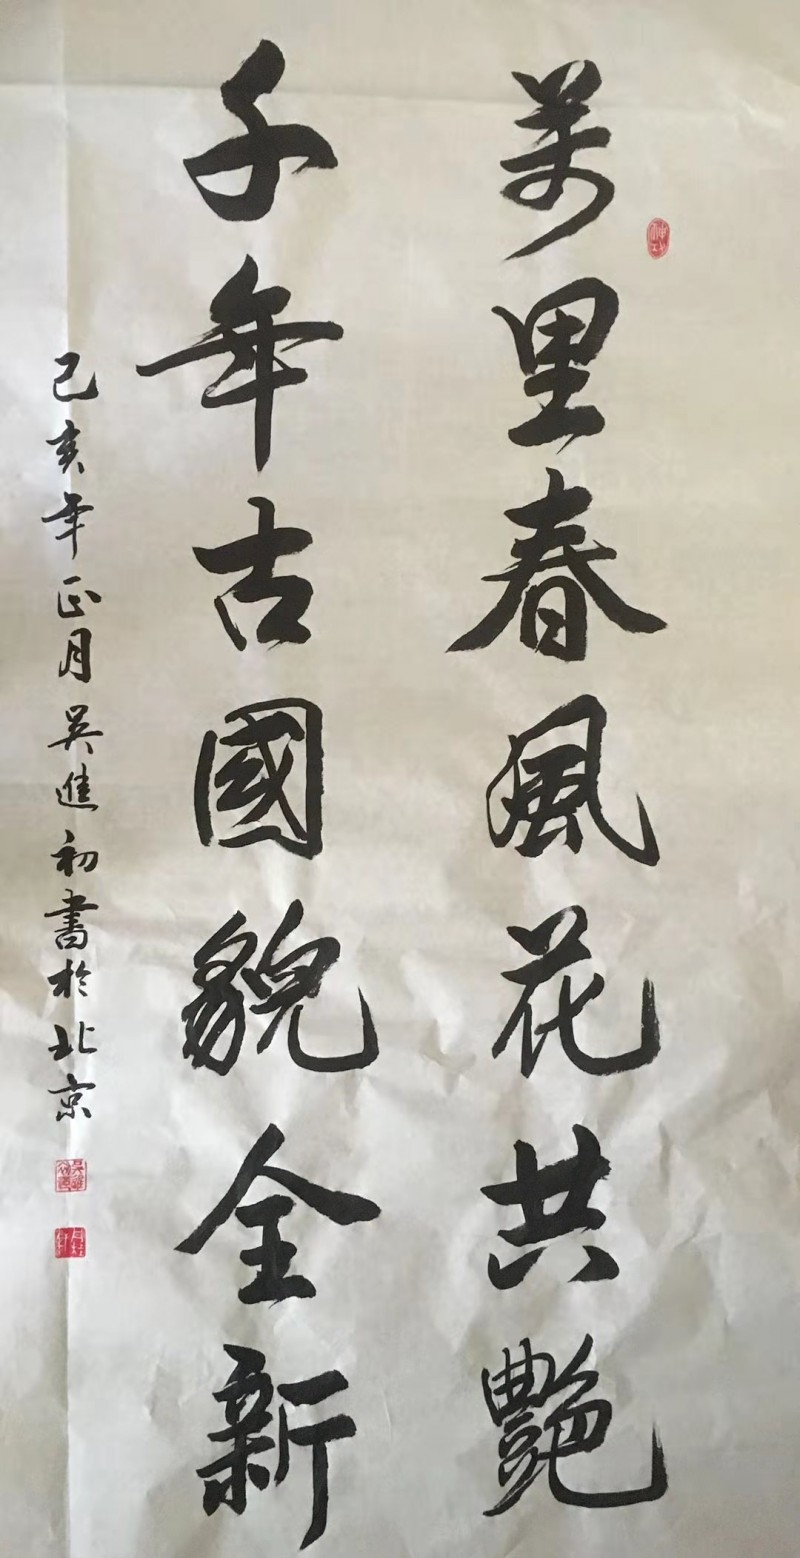 萬里春風花共艷
千年古國貌全新
己亥年正月吳進初書於北京